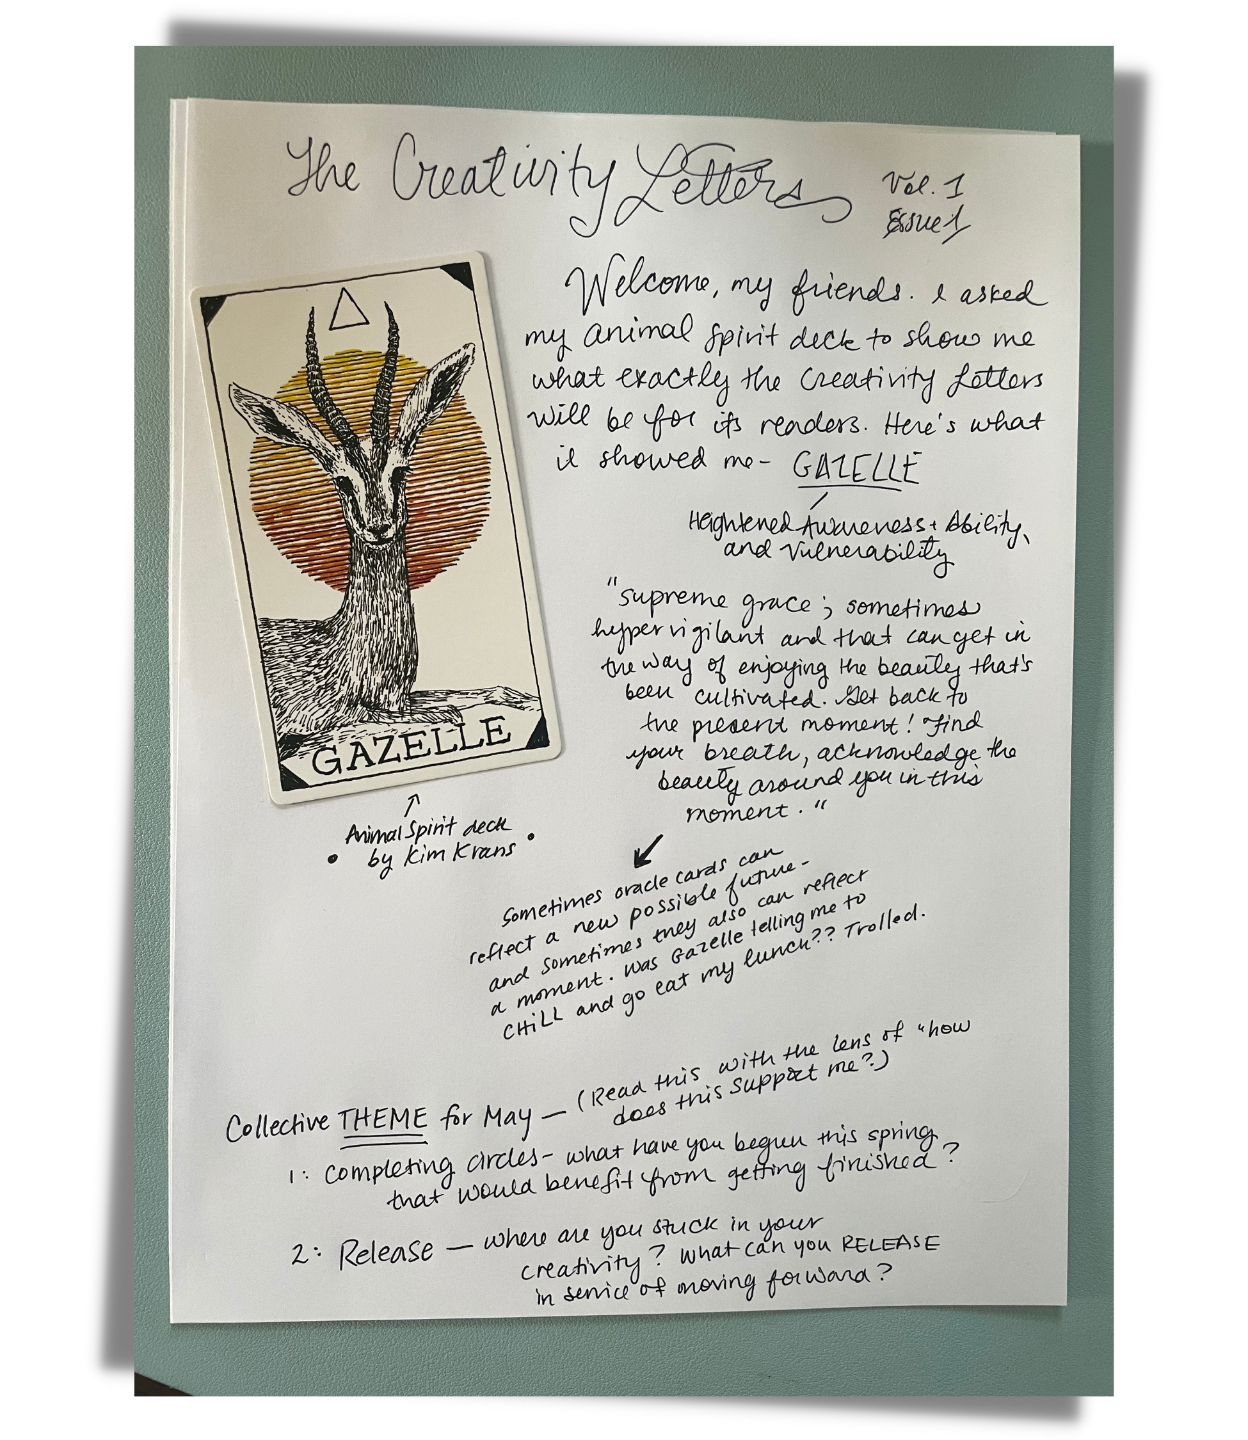 The Creativity Letters
Vol. 1
Issue 1
Welcome, my friends. I asked
my animal spirit deck to show me
what exactly the Creativity Letters
will be for its readers. Here's what
it showed me- GAZELLE
Heightened Awareness + Ability,
and Vulnerability
"supreme grace; sometimes
hypervigilant and that can get in
the way of enjoying the beauty that's
been cultivated. Get back to
the present moment! Find
your breath, acknowledge the
beauty around you in this
moment."
GAZELLE
Animal Spirit deck
by Kim Krans
Sometimes oracle cards can
reflect a new possible future -
and sometimes they also can reflect
a moment. Was Gazelle telling me to
CHILL and go eat my lunch?? Trolled.
Collective THEME for May — (Read this with the lens of "how
does this support me?)
1: Completing circles- what have you begun this spring
that would benefit from getting finished?
2: Release — where are you stuck in your
creativity? What can you RELEASE
in service of moving forward?